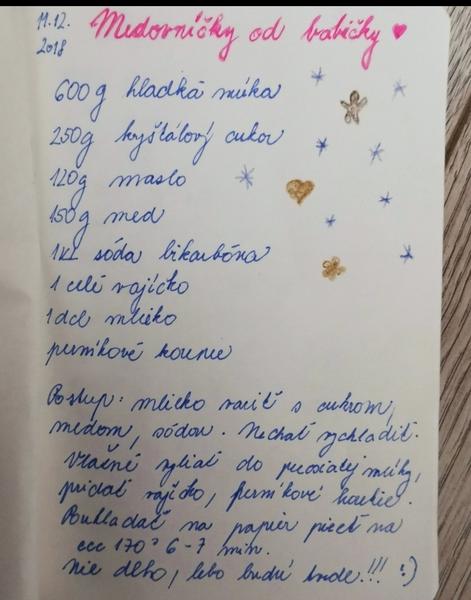 11.12.
2018
Medovníčky od babičky ♥
600g hladká múka
250g kryštálový cukor
120g maslo
150g med
1KL sóda bikarbóna
1 celé vajíčko
1 dcl mlieko
perníkové korenie
Postup: mlieko variť s cukrom,
medom, sódou. Nechať vychladiť.
Vlažné vyliať do preosiatej múky,
pridať vajíčko, perníkové korenie.
Poukladať na papier piecť na
ccc 170° 6-7 min.
nie dlho, lebo budú tvrdé!!! :)